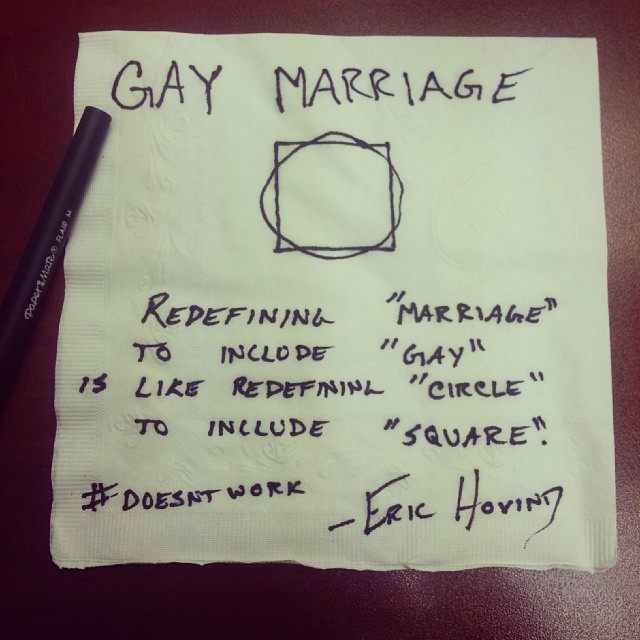 GAY MARRIAGE
REDEFINING "MARRIAGE"
TO INCLUDE "GAY"
IS LIKE REDEFINING "CIRCLE"
TO INCLUDE "SQUARE".
#DOESNTWORK
- ERIC HOVIND
Paper:Mate® FLAIR M